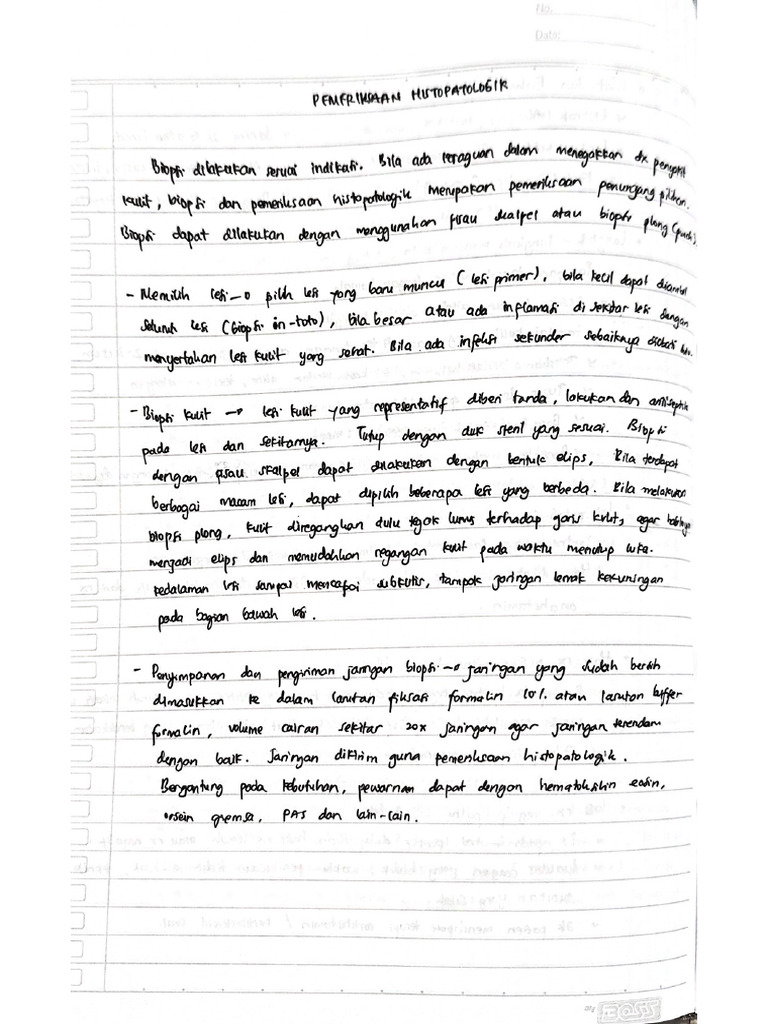 No.
Date:
PEMERIKSAAN HISTOPATOLOGIK
Biopsi dilakukan sesuai indikasi. Bila ada keraguan dalam menegakkan dx penyakit
kulit, biopsi dan pemeriksaan histopatologik merupakan pemeriksaan penunjang pilihan.
Biopsi dapat dilakukan dengan menggunakan pisau skalpel atau biopsi plong (punch).
- Memilih lesi → pilih lesi yang baru muncul (lesi primer), bila kecil dapat diambil
seluruh lesi (biopsi in-toto), bila besar atau ada inflamasi di sekitar lesi dengan
menyertakan lesi kulit yang sehat. Bila ada infeksi sekunder sebaiknya diobati
- Biopsi kulit → lesi kulit yang representatif diberi tanda, lakukan dan antiseptik
pada lesi dan sekitarnya. Tutup dengan duk steril yang sesuai. Biopsi
dengan pisau skalpel dapat dilakukan dengan bentuk elips, Bila terdapat
berbagai macam lesi, dapat dipilih beberapa lesi yang berbeda. Bila melakukan
biopsi plong, kulit diregangkan dulu tegak lurus terhadap garis kulit, agar
menjadi elips dan memudahkan regangan kulit pada waktu menutup luka.
kedalaman lesi sampai mencapai subkutis, tampak jaringan lemak kekuningan
pada bagian bawah lesi.
- Penyimpanan dan pengiriman jaringan biopsi → jaringan yang sudah bersih
dimasukkan ke dalam larutan fiksasi formalin 10% atau larutan buffer
formalin, volume cairan sekitar 20x jaringan agar jaringan terendam
dengan baik. Jaringan dikirim guna pemeriksaan histopatologik.
Bergantung pada kebutuhan, pewarnan dapat dengan hematoksilin eosin,
orsein giemsa, PAS dan lain-lain.
BOSS